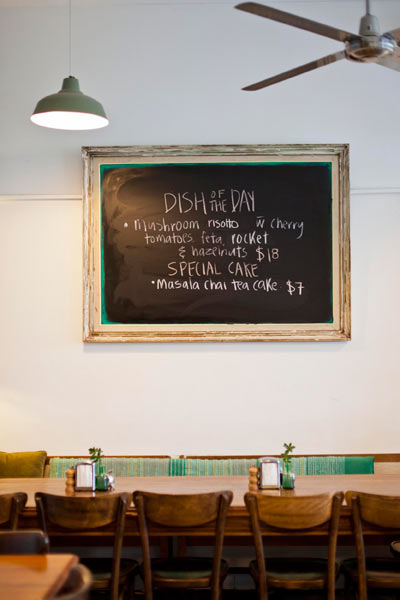 DISH OF THE DAY
• Mushroom risotto w̄ cherry
tomatoes, feta, rocket
& hazelnuts $18
SPECIAL CAKE
• Masala chai tea cake $7